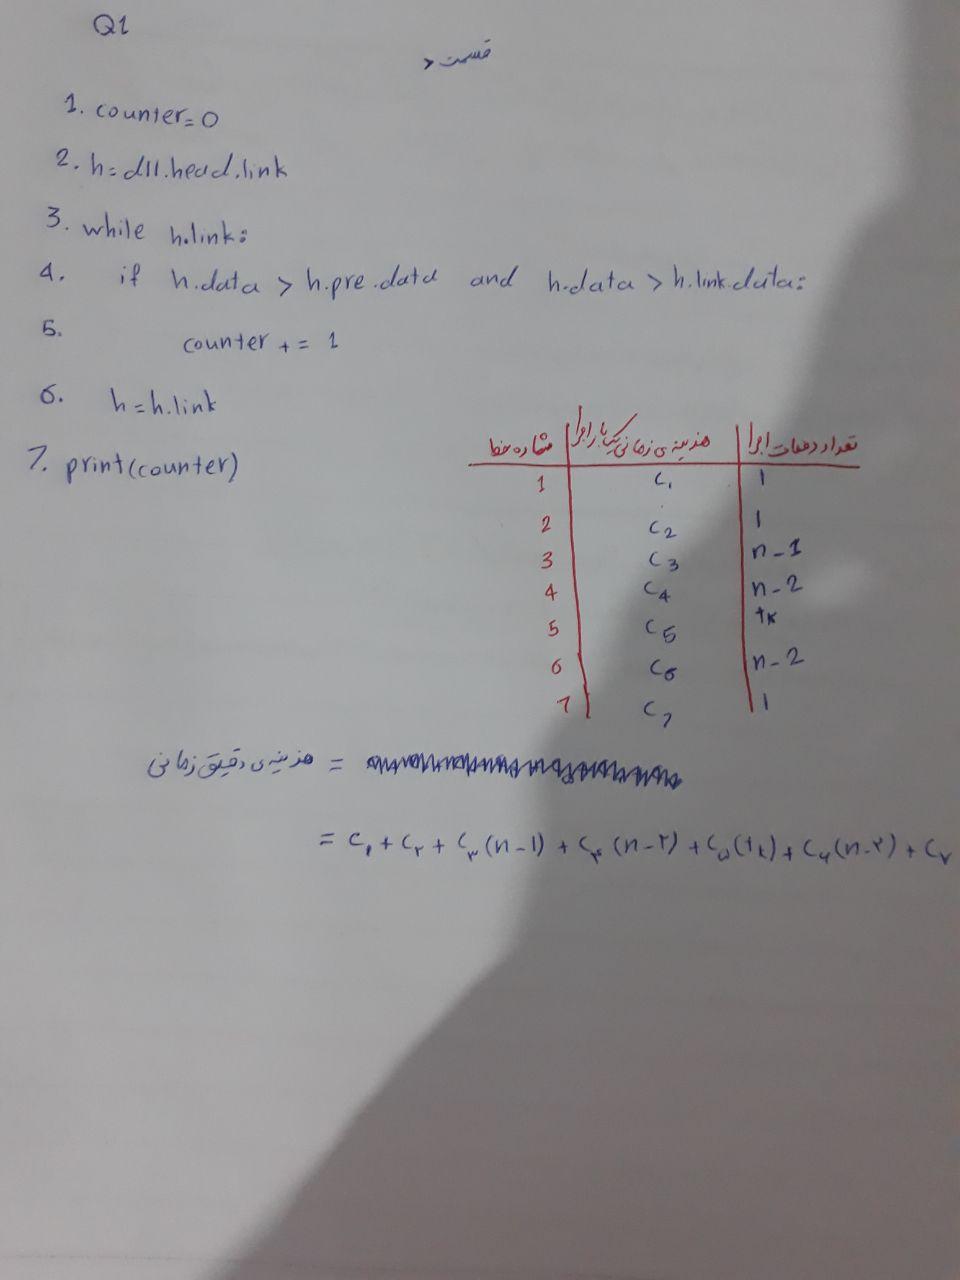 Q1
قسمت >
1. counter=0
2. h=dll.head.link
3. while h.link:
4. if h.data > h.pre.data and h.data > h.link.data:
5. counter += 1
6. h=h.link
7. print(counter)
شماره خط | هزینه‌ی زمانی یکبار اجرا | تعداد دفعات اجرا
1 c₁ 1
2 c₂ 1
3 c₃ n-1
4 c₄ n-2
5 c₅ tₖ
6 c₆ n-2
7 c₇ 1
هزینه‌ی دقیق زمانی =
= c₁ + c₂ + c₃(n-1) + c₄(n-۲) + c₅(tₖ) + c₆(n-۲) + c₇